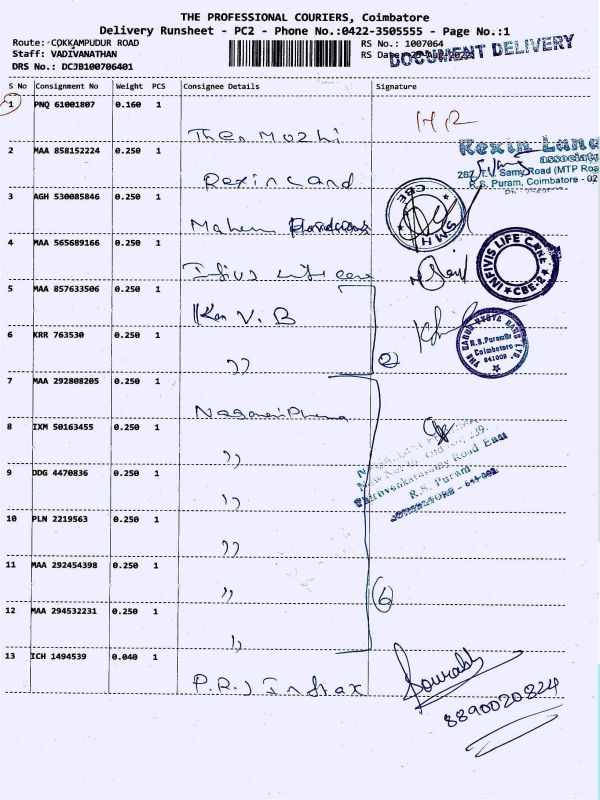 THE PROFESSIONAL COURIERS, Coimbatore
Delivery Runsheet - PC2 - Phone No.:0422-3505555 - Page No.:1
Route: COKKAMPUDUR ROAD
RS No.: 1007064
Staff: VADIVANATHAN
RS Date
DOCUMENT DELIVERY
DRS No.: DCJB100706401
S No Consignment No Weight PCS Consignee Details Signature
1 PNQ 61001807 0.160 1 Then Mozhi
2 MAA 858152224 0.250 1 Rexin Land
Rexin Land
associat
T.V. Samy Road (MTP Roa
R.S. Puram, Coimbatore - 02
3 AGH 530085846 0.250 1 Mahem
SMH
CBE
4 MAA 565689166 0.250 1 Infivis Life care
INFIVIS LIFE CARE
CBE-2
5 MAA 857633506 0.250 1 Kar V. B
6 KRR 763530 0.250 1 ,,
2
THE KARUR VYSYA BANK LTD.
R.S.PuramBr
Coimbatore
641002
7 MAA 292808205 0.250 1 Nagamani Pharma
8 IXM 50163455 0.250 1 ,,
9 DDG 4470836 0.250 1 ,,
Thiruvenkatasamy Road East
R.S. Puram
COIMBATORE - 641 002
10 PLN 2219563 0.250 1 ,,
11 MAA 292454398 0.250 1 ,,
6
12 MAA 294532231 0.250 1 ,,
13 ICH 1494539 0.040 1 P.R.J Infrax
Sourabh
8890020824